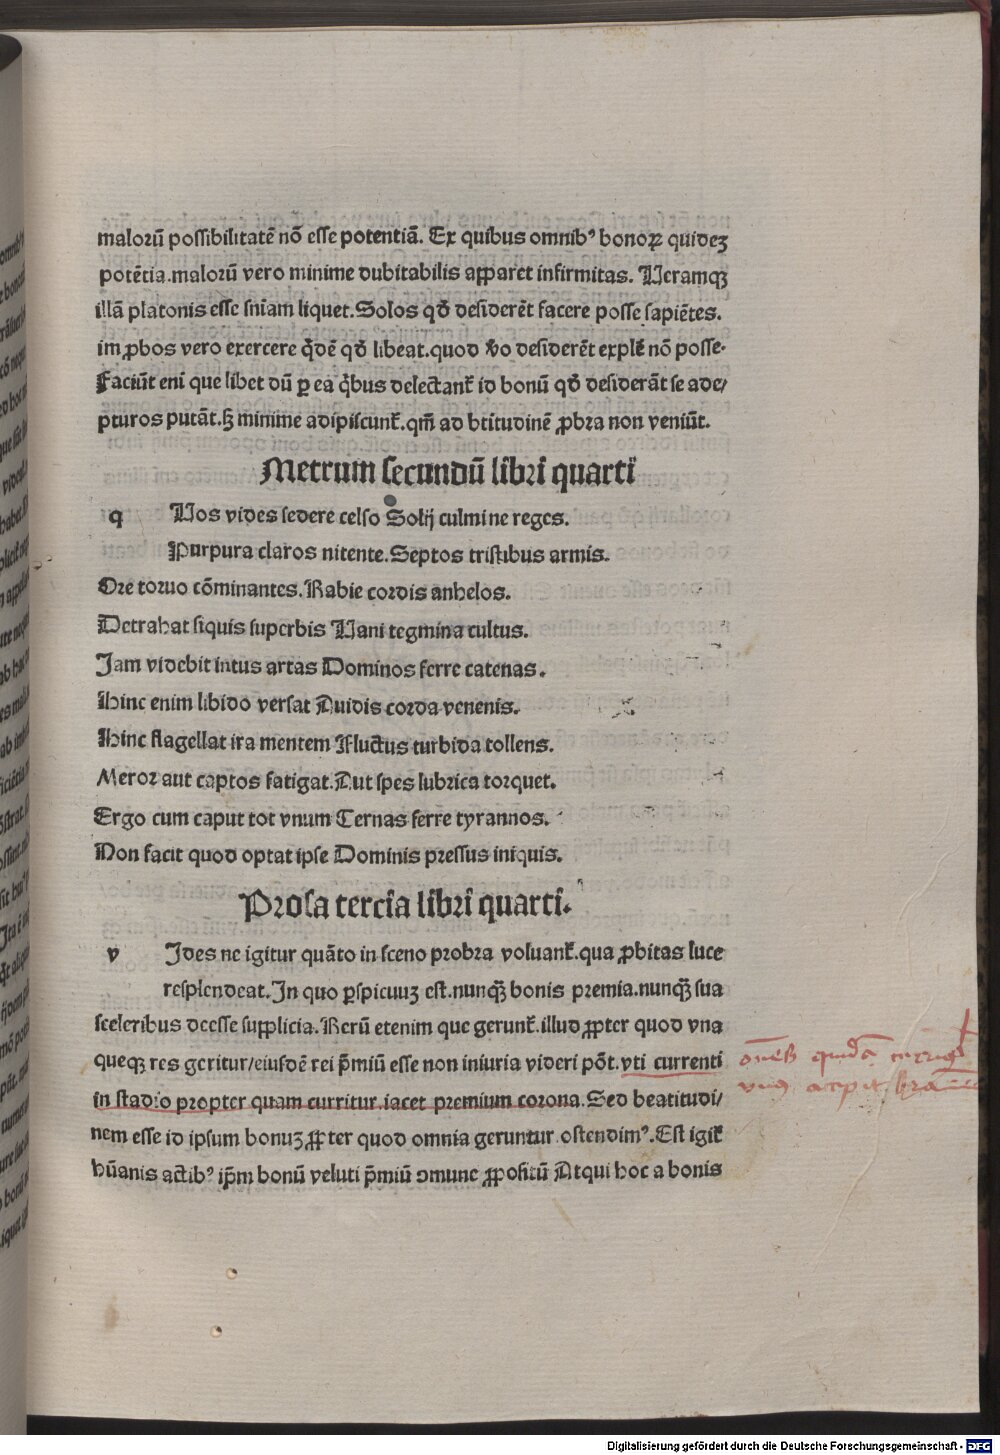 malorū possibilitatē nō esse potentiā. Ex quibus omnibꝰ bonoꝝ quideꝫ
potētia.malorū vero minime dubitabilis apparet infirmitas. Veramqꝫ
illā platonis esse sniam liquet.Solos qđ desiderēt facere posse sapiētes.
improbos vero exercere q̄dē qđ libeat.quod v̄o desiderēt explē nō posse.
Faciūt eni que libet dū ꝑ ea q̄bus delectant̄ id bonū qđ desiderāt se ade/
pturos putāt.sꝫ minime adipiscunt̄.qm̄ ad btitudinē ꝓbra non veniūt.
Metrum secundū libri quarti
q Vos vides sedere celso Solij culmine reges.
Purpura claros nitente.Septos tristibus armis.
Ore toruo cōminantes.Rabie cordis anhelos.
Detrahat siquis superbis Vani tegmina cultus.
Jam videbit intus artas Dominos ferre catenas.
Hinc enim libido versat Auidis corda venenis.
Hinc flagellat ira mentem Fluctus turbida tollens.
Meror aut captos fatigat.Aut spes lubrica torquet.
Ergo cum caput tot vnum Ternas ferre tyrannos.
Non facit quod optat ipse Dominis pressus iniquis.
Prosa tercia libri quarti.
v Jdes ne igitur quāto in sceno probra voluant̄.qua ꝓbitas luce
resplendeat.Jn quo ꝑspicuuꝫ est.nunqꝫ̄ bonis premia.nunqꝫ̄ sua
sceleribus deesse supplicia.Rerū etenim que gerunt̄.illud ꝓpter quod vna
queqꝫ res geritur/eiusdē rei p̄miū esse non iniuria videri pōt.vti currenti
in stadio propter quam curritur.iacet premium corona.Sed beatitudi/
nem esse id ipsum bonuꝫ ꝓpter quod omnia geruntur ostendimꝰ.Est igit̄
hūanis actibꝰ ip̄m bonū veluti p̄miū ↄmune ꝓpositū Atqui hoc a bonis
Digitalisierung gefördert durch die Deutsche Forschungsgemeinschaft - DFG